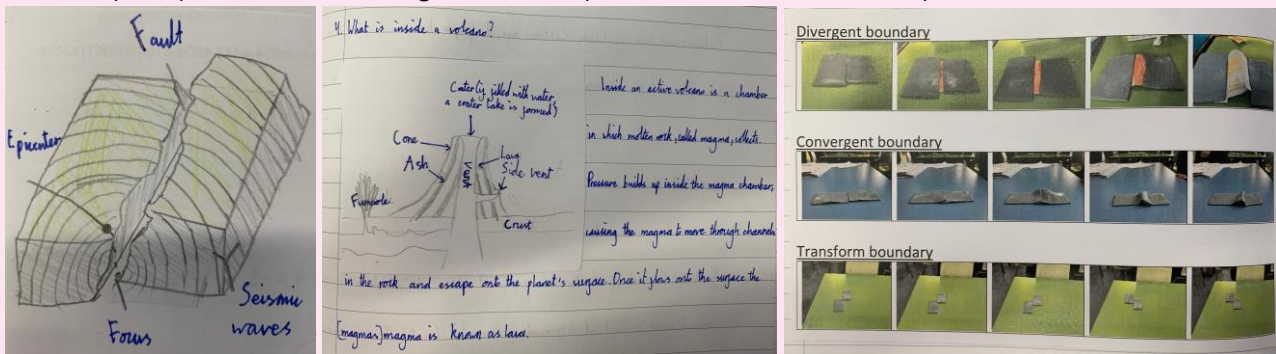 Fault
Epicenter
Seismic
waves
Focus
4. What is inside a volcano?
Crater(if filled with water,
a crater lake is formed)
Cone
Ash
Lava
Side vent
Crust
Inside an active volcano is a chamber
in which molten rock, called magma, collects.
Pressure builds up inside the magma chamber,
causing the magma to move through channels
in the rock and escape onto the planet's surface. Once it flows onto the surface the
(magmas) magma is known as lava.
Divergent boundary
Convergent boundary
Transform boundary